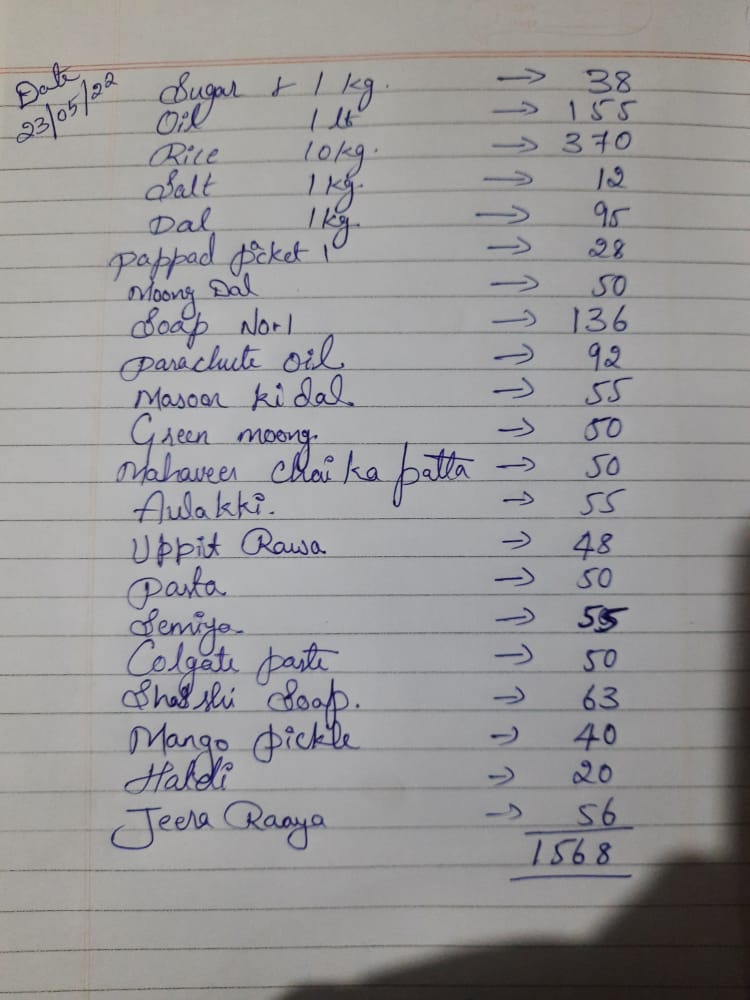 Date
23/05/22
Sugar 1 kg. → 38
Oil 1 lt → 155
Rice 10kg. → 370
Salt 1kg. → 12
Dal 1kg. → 95
pappad picket 1 → 28
Moong Dal → 50
Soap No-1 → 136
parachute oil → 92
Masoor ki dal → 55
Green moong. → 50
Mahaveer Chai ka patta → 50
Aulakki. → 55
Uppit Rawa → 48
pasta → 50
Semiya → 55
Colgate paste → 50
Soap. → 63
Mango pickle → 40
Haldi → 20
Jeera Raaya → 56
1568